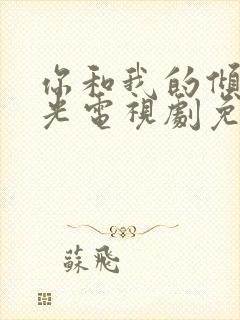 你和我的傾
光電視劇免
蘇飛